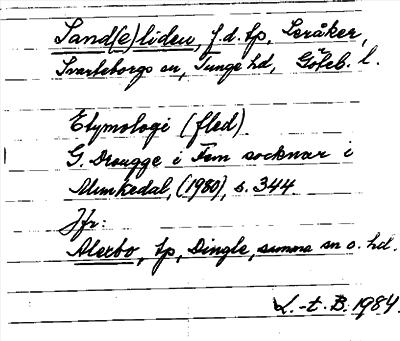 Sand(e)liden, f.d. tp, Leråker,
Svarteborgs sn, Tunge hd, Göteb. l.
Etymologi (fled).
G. Drougge i Fem socknar i
Munkedal, (1980), s. 344
Jfr:
Alexbo, tp, Dingle, samma sn o. hd.
L.-t. B. 1984.